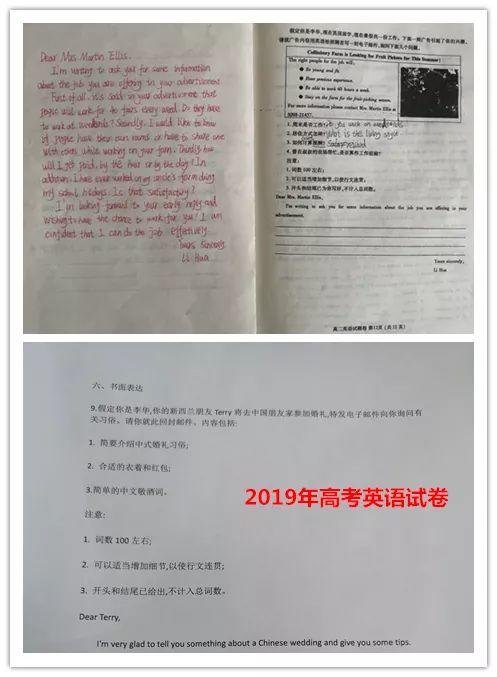 Dear Mrs Martin Ellis.
I'm writing to ask you for some information
about the job you are offering in your advertisement
First of all. it's said in your advertisement that
people will work for 40 hours every week. Do they have
to work at weekends? Secondly. I would like to know
if people have their own rooms or have to share one
with others while working on your farm. Thirdly how
will I get paid, by the hour or by the day? In
addition. I have ever worked on my uncle's farm during
my school holidays. Is that satisfactory?
I'm looking forward to your early reply and
wishing to have the chance to work for you! I am
confident that I can do the job effectively
Yours Sincerely
Li Hua
假定你是李华,现在英国留学,想在暑假找一份工作。下面一则广告引起了你的兴趣,
请就广告内容用英语给招聘者写一封电子邮件,询问下面几个问题。
Farm is Looking for Fruit Pickers for This Summer!
The right people for the job will,
Be young and fit.
Have previous experience.
Be able to work 40 hours a week.
Stay on the farm for the fruit-picking season.
For more information please contact Mrs. Martin Ellis at
1. 周末是否工作? Do you work on weekends
2. 居住方式怎样? What is the living style
3. 如何计算报酬?
4. 曾在叔叔的农场帮忙,是否算作工作经验?
注意:
1. 词数 100 左右;
2. 可以适当增加细节,以使行文连贯;
3. 开头和结尾已为你写好,不计入总词数。
Dear Mrs. Martin Ellis,
I'm writing to ask you for some information about the job you are offering in your
advertisement.
Yours sincerely,
Li Hua
高二英语试题卷 第12页(共12页)
六、书面表达
9.假定你是李华,你的新西兰朋友 Terry 将去中国朋友家参加婚礼,特发电子邮件向你询问有
关习俗。请你就此回封邮件。内容包括:
1. 简要介绍中式婚礼习俗;
2. 合适的衣着和红包;
3.简单的中文敬酒词。
2019年高考英语试卷
注意:
1. 词数 100 左右;
2. 可以适当增加细节,以使行文连贯;
3. 开头和结尾已给出,不计入总词数。
Dear Terry,
I'm very glad to tell you something about a Chinese wedding and give you some tips.